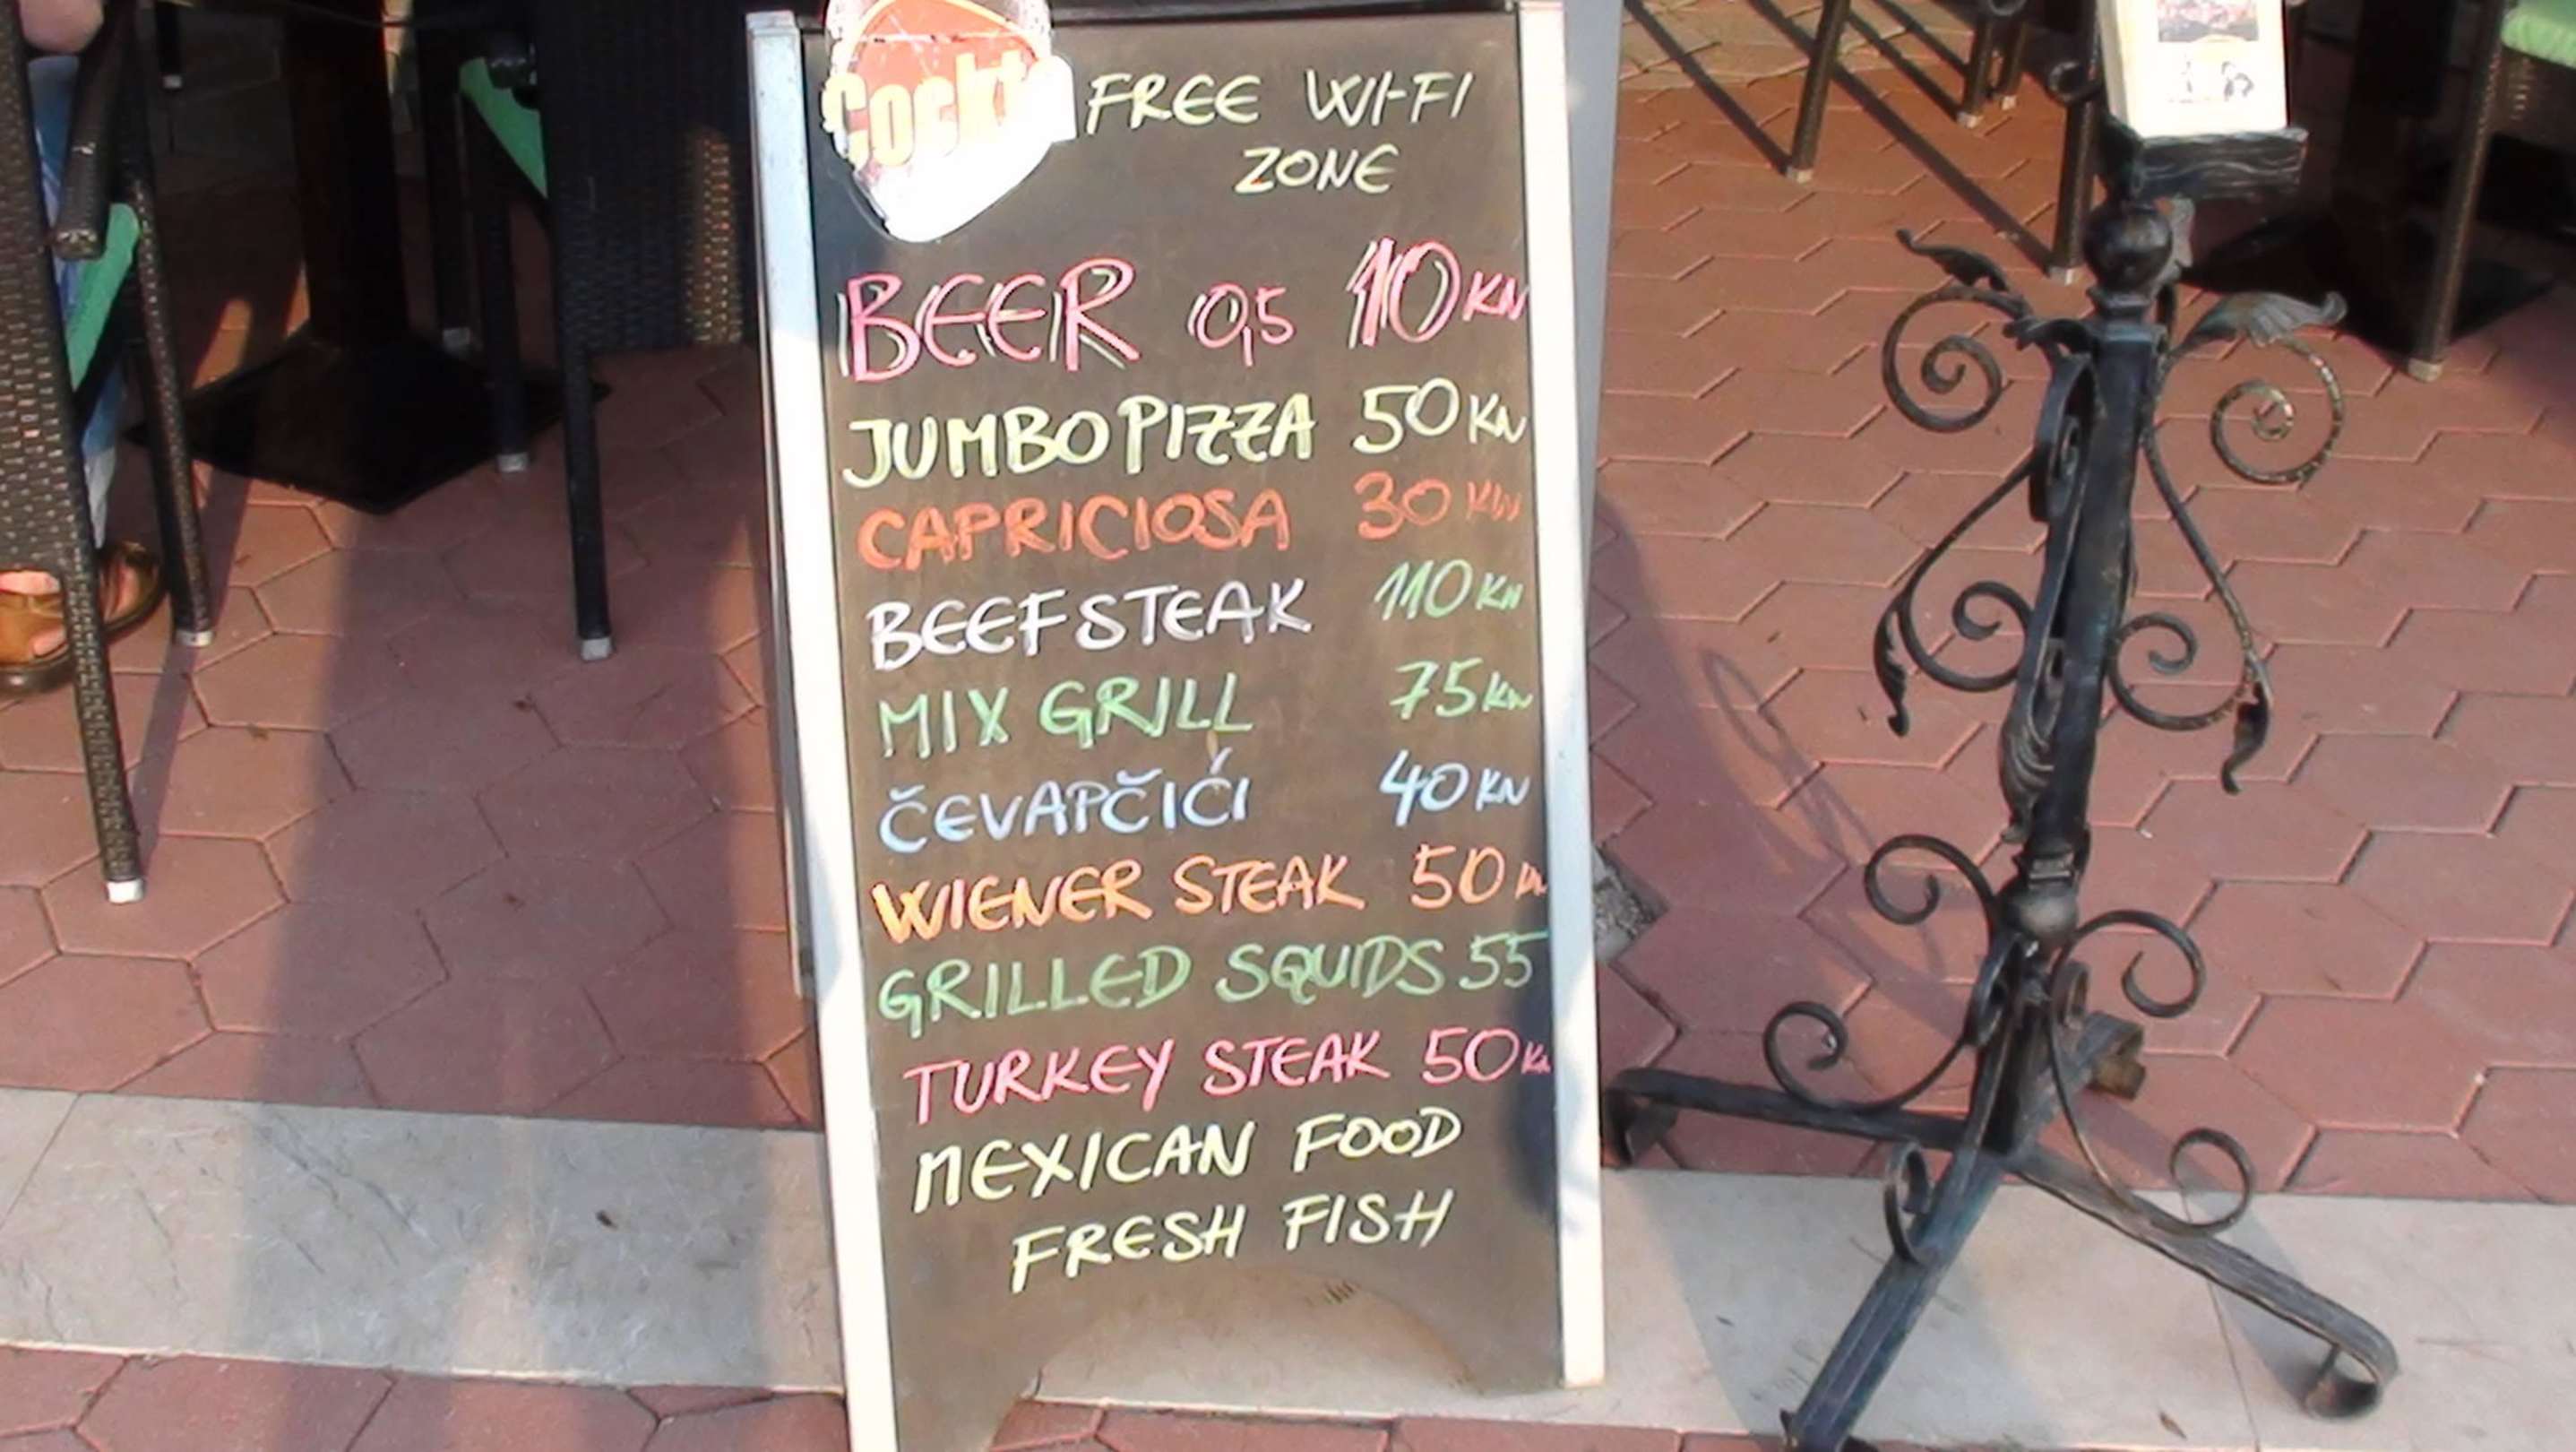 Cockta
FREE WI-FI
ZONE
BEER 0,5 10 KN
JUMBO PIZZA 50 KN
CAPRICIOSA 30 KN
BEEFSTEAK 110 KN
MIX GRILL 75 KN
ČEVAPČIĆI 40 KN
WIENER STEAK 50 KN
GRILLED SQUIDS 55
TURKEY STEAK 50 KN
MEXICAN FOOD
FRESH FISH